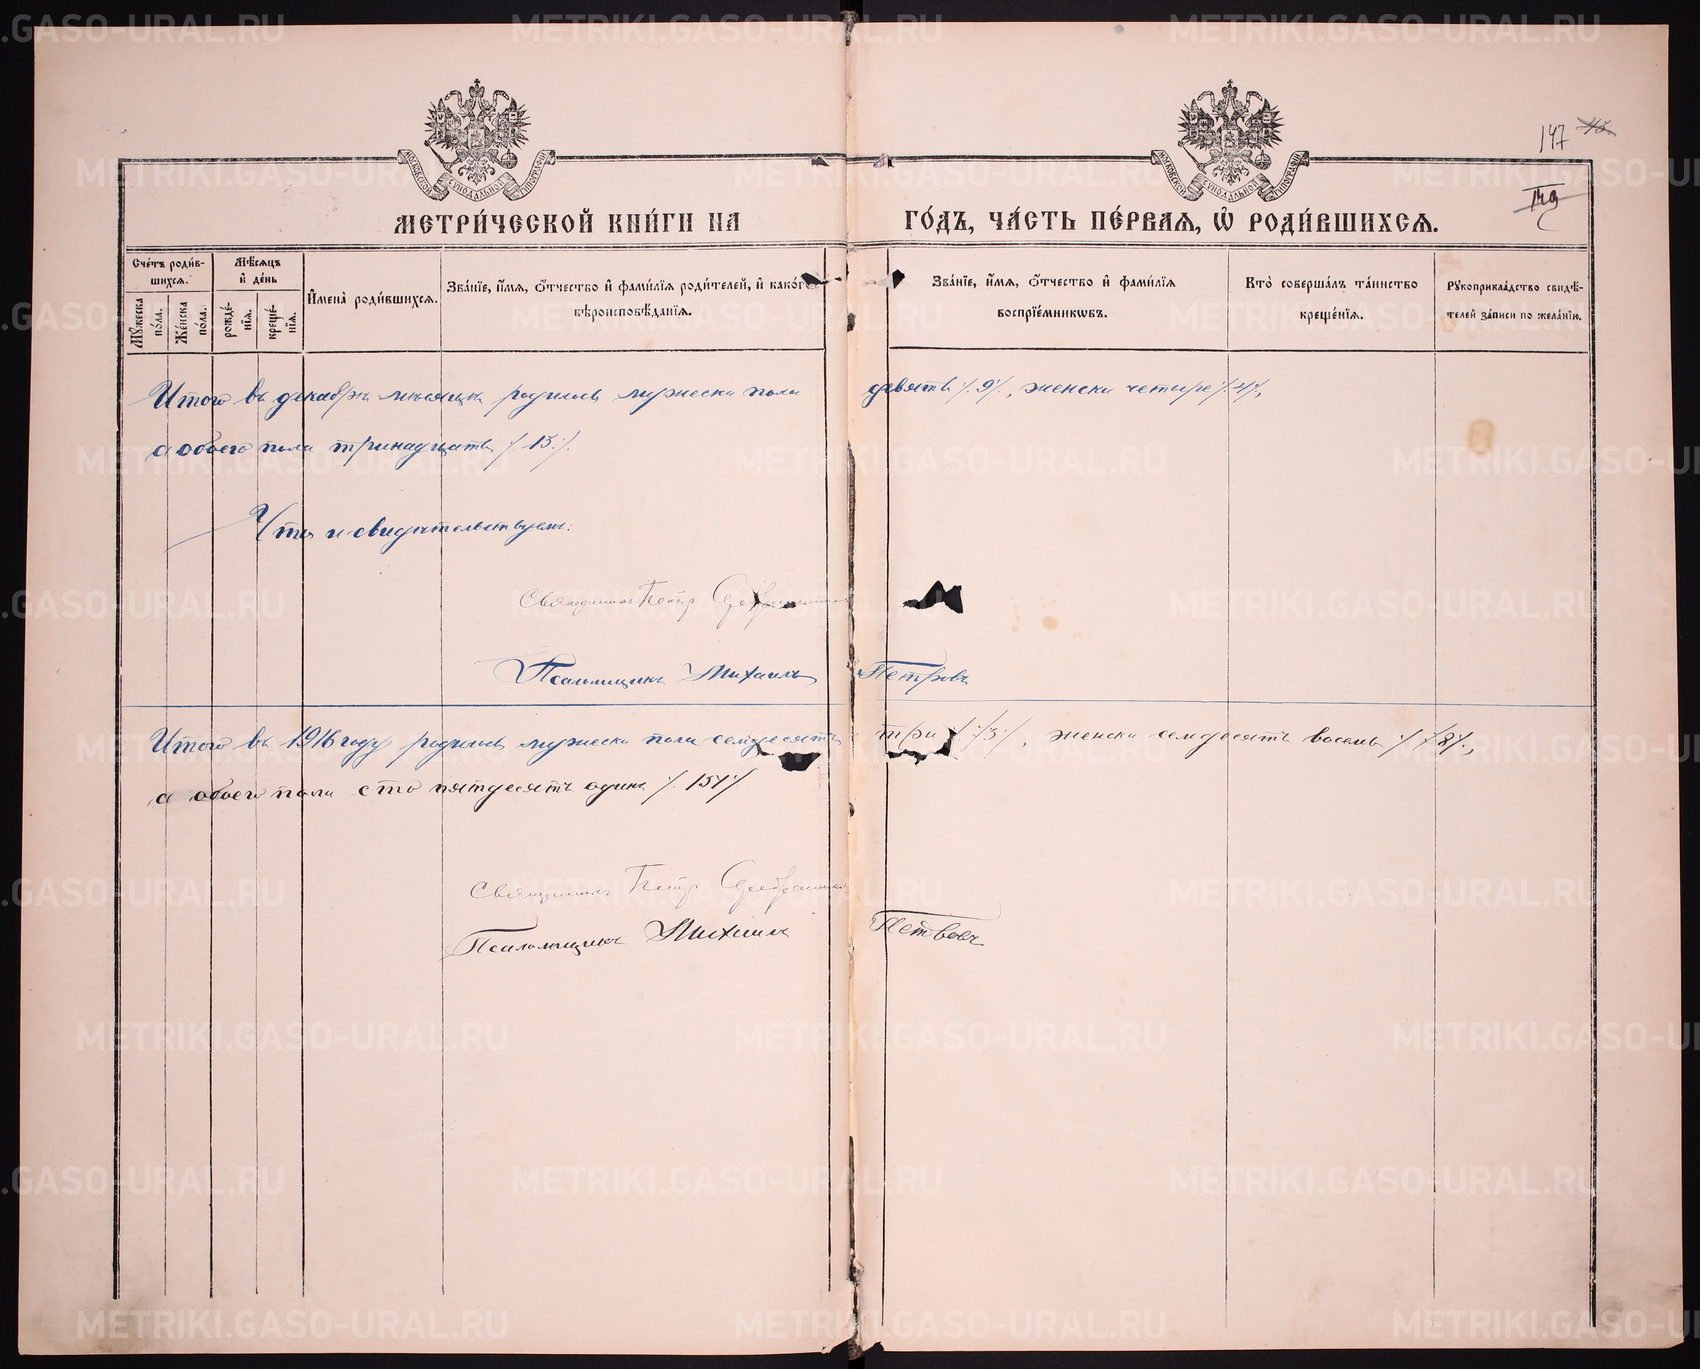 147
149
МОСКОВСКОЙ СѴНОДАЛЬНОЙ ТИПОГРАФІИ
МОСКОВСКОЙ СѴНОДАЛЬНОЙ ТИПОГРАФІИ
МЕТРИ́ЧЕСКОЙ КНИ́ГИ НА ГО́ДЪ, ЧА́СТЬ ПЕ́РВАЯ, Ѽ РОДИ́ВШИХСЯ.
Сче́тъ роди́в-
шихся.
Мꙋ́жеска по́ла.
Же́нска по́ла.
Мѣ́сяцъ
и҆ де́нь
рожде́-
нїя.
креще́-
нїя.
И҆мена̀ роди́вшихся.
Зва́нїе, и҆́мя, ѻ҆́тчество и҆ фами́лїя роди́телей, и҆ како́гѡ
вѣроисповѣ́данїя.
Зва́нїе, и҆́мя, ѻ҆́тчество и҆ фами́лїя
воспрїе́мникѡвъ.
Кто̀ соверша́лъ та́инство
креще́нїя.
Рꙋкоприкла́дство свидѣ́-
телей за́писи по жела́нїю.
Итого въ декабрѣ мѣсяцѣ родилось мужеска пола девять /. 9/., женска четыре /. 4/.,
а обоего пола тринадцать /. 13./.
Что и свидѣтельствуемъ:
Священникъ Петръ
Псаломщикъ Михаилъ Петровъ
Итого въ 1916 году родилось мужеска пола семьдесятъ три /. 73/., женска семдесятъ восемь /. 78/.,
а обоего пола сто пятдесятъ одинъ /. 151/.
Священникъ Петръ
Псаломщикъ Михаилъ Петровъ
METRIKI.GASO-URAL.RU